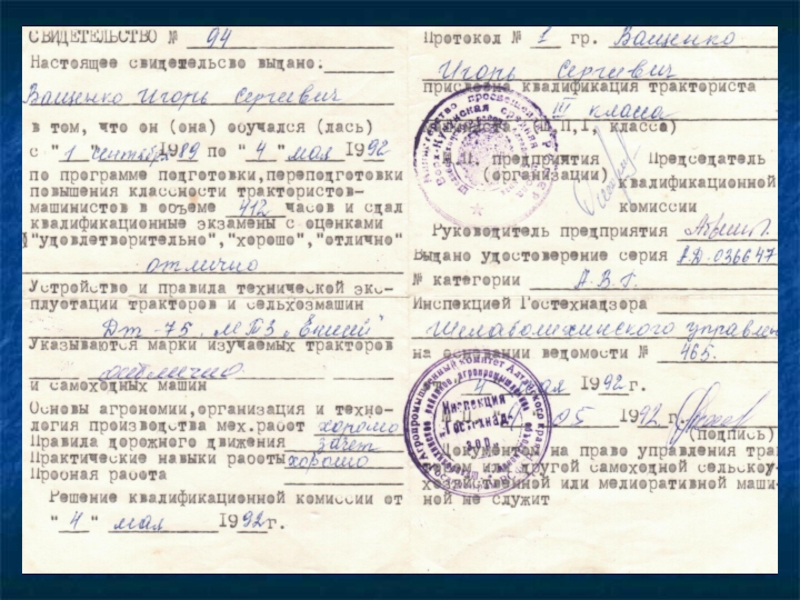 СВИДЕТЕЛЬСТВО № 94
Настоящее свидетельсво выдано:
Ващенко Игорь Сергеевич
в том, что он (она) обучался (лась)
с "1" сентября 1989 по "4" мая 1992
по программе подготовки, переподготовки
повышения классности трактористов-
машинистов в объеме 412 часов и сдал
квалификационные экзамены с оценками
"удовлетворительно","хорошо","отлично"
отлично
Устройство и правила технической экс-
плуотации тракторов и сельхозмашин
Дт-75, МТЗ, "Енисей"
Указываются марки изучаемых тракторов
отлично
и самоходных машин
Основы агрономии, организация и техно-
логия производства мех.работ хорошо
Правила дорожного движения зачет
Практические навыки работы хорошо
Пробная работа
Решение квалификационной комиссии от
"4" мая 1992г.
Протокол № 1 гр. Ващенко
Игорь Сергеевич
присвоена квалификация тракториста
III класса
(Ш,П,I, класса)
М.П. предприятия Председатель
(организации) квалификационной
комиссии
Руководитель предприятия
Выдано удостоверение серия А.Д. 036647
№ категории А.В.Г.
Инспекцией Ростехнадзора
Шелаболихинского управлен
на основании ведомости № 465.
4 мая 1992г.
05 1992г.
(подпись)
Документом на право управления трак
или другой самоходной сельскоу
хозяйственной или мелиоративной маши-
ной не служит
Агропромышленный комитет Алтайского края
Инспекция
"Гостехнад-
зор"